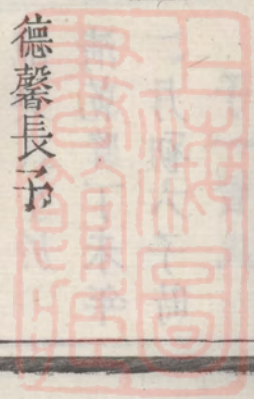 德馨長子
上海圖
書館藏